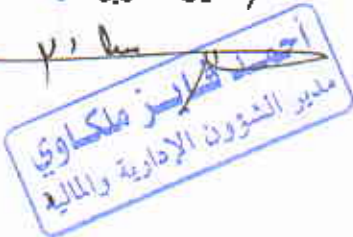 أحمد فايز ملكاوي
مدير الشؤون الإدارية والمالية